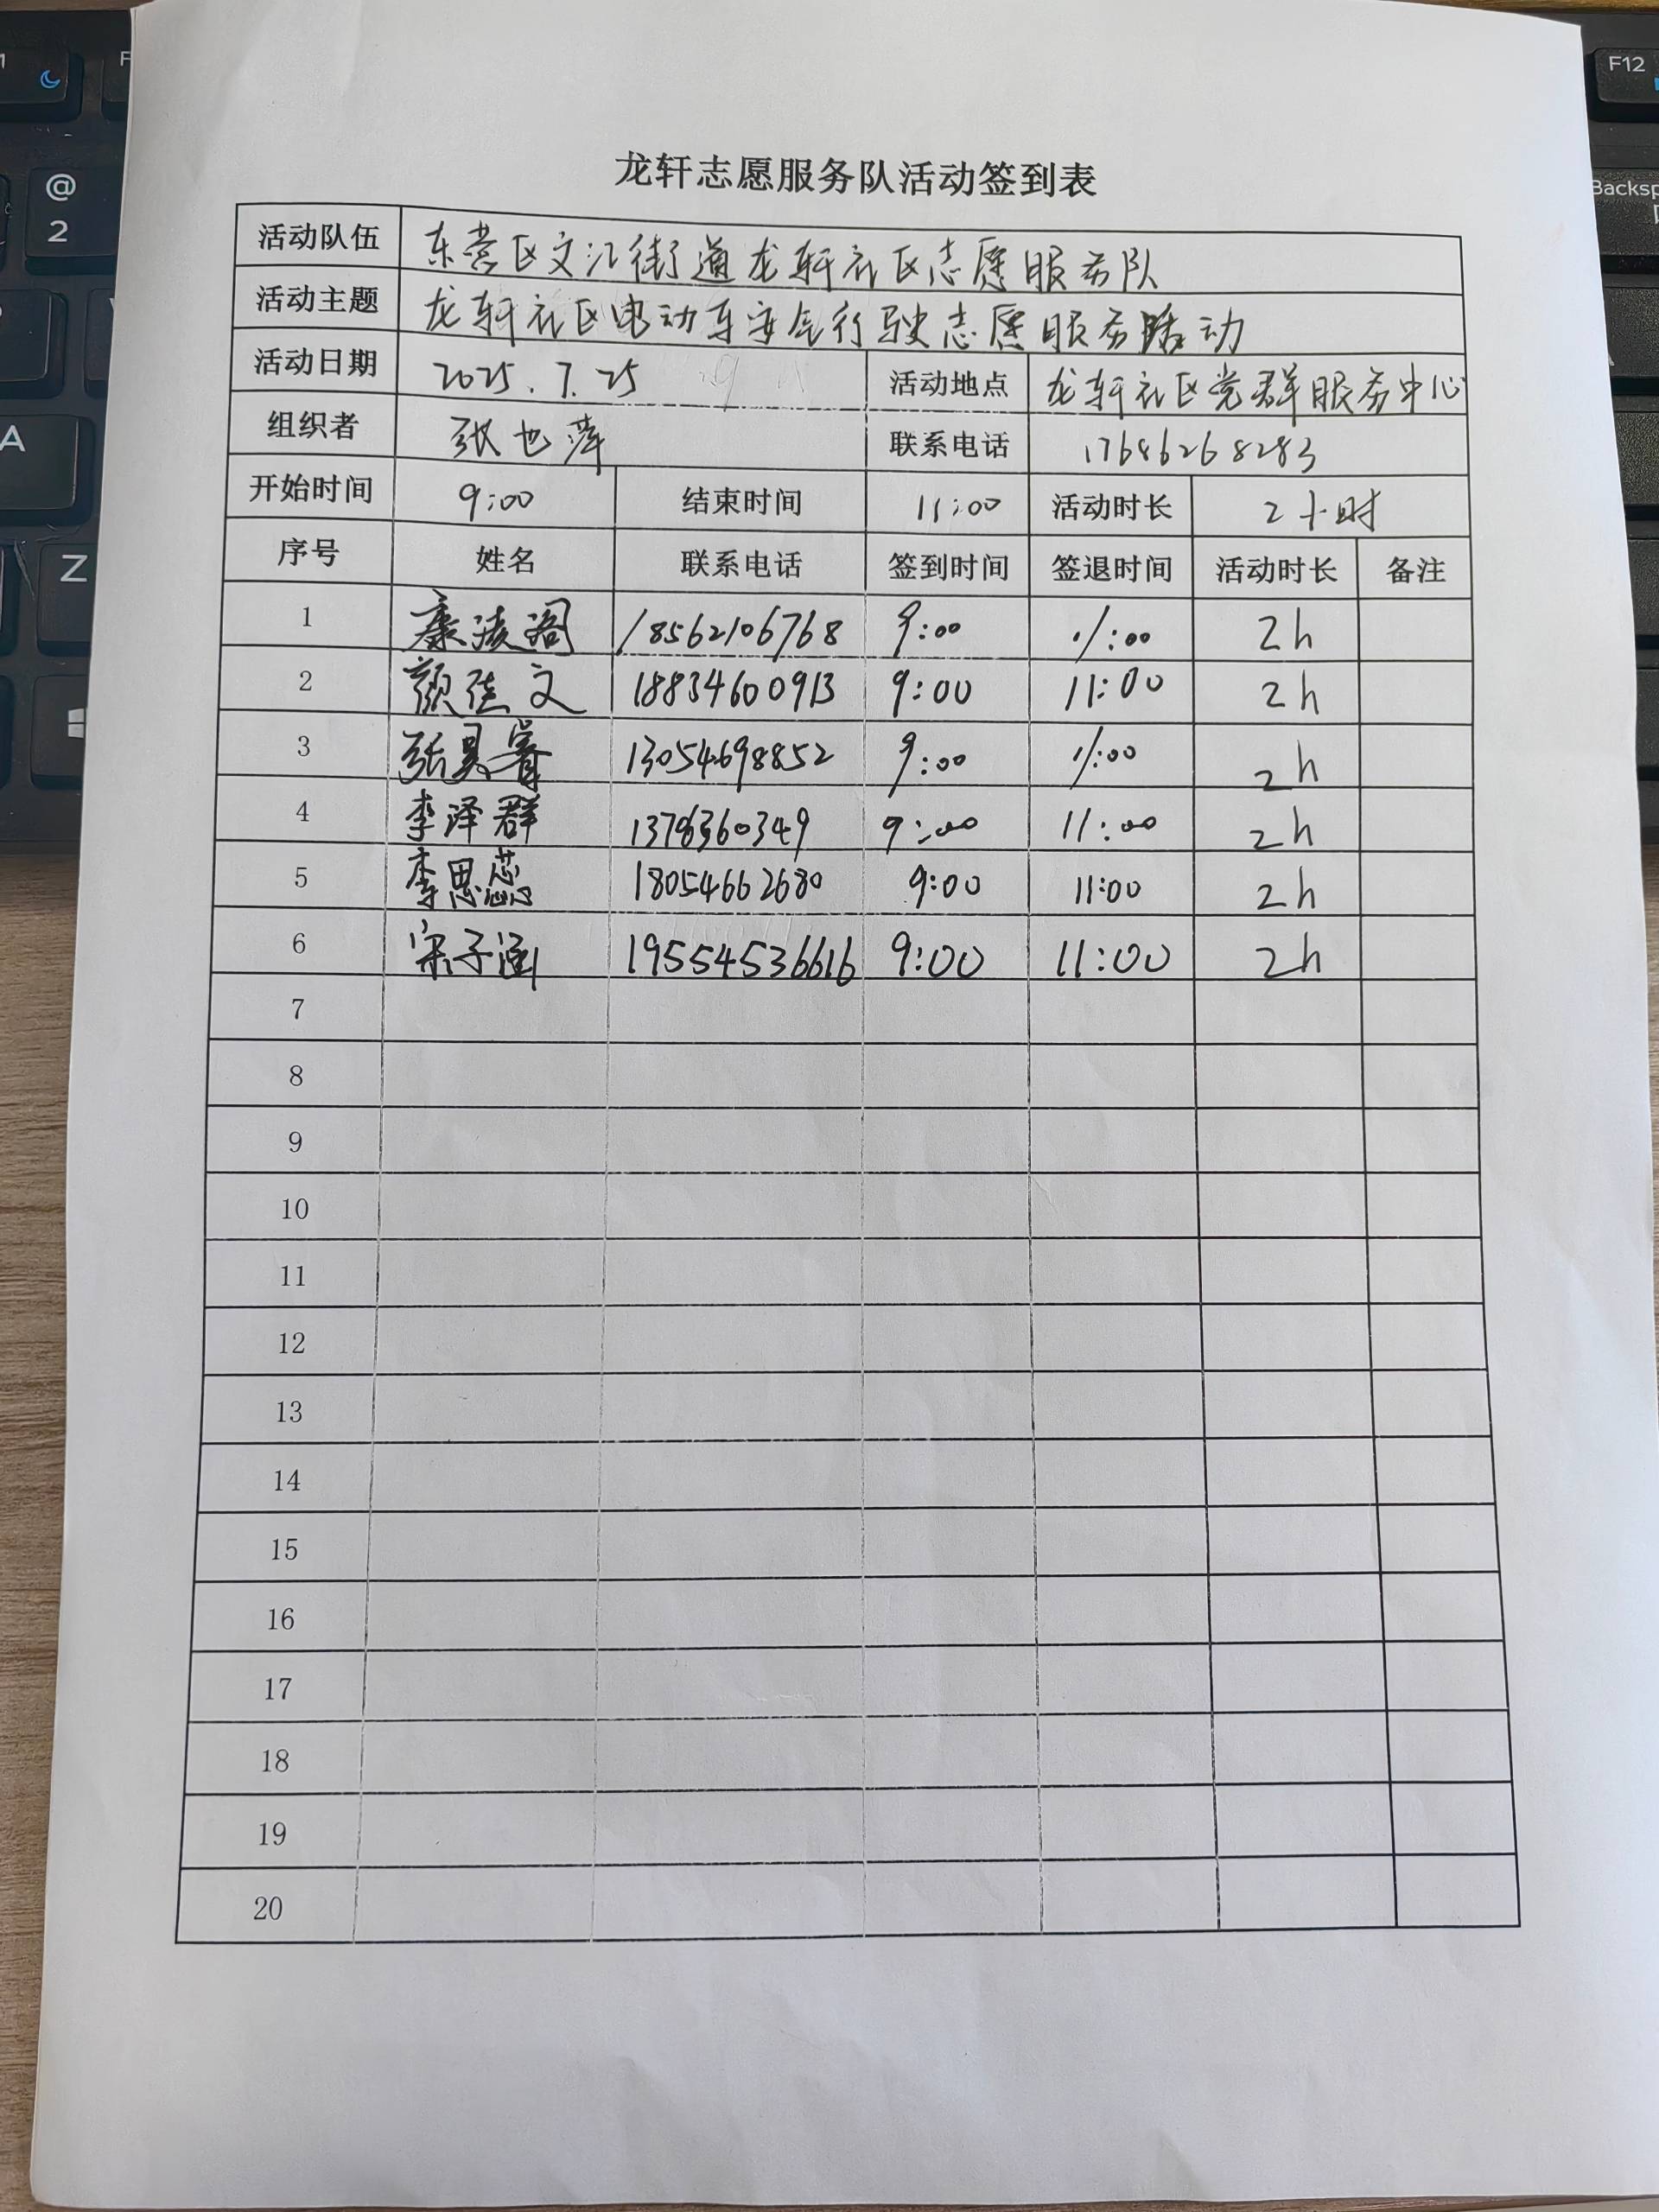 龙轩志愿服务队活动签到表
活动队伍 东营区文汇街道龙轩社区志愿服务队
活动主题 龙轩社区电动车安全行驶志愿服务活动
活动日期 2025.7.25 活动地点 龙轩社区党群服务中心
组织者 张也萍 联系电话 17686268283
开始时间 9:00 结束时间 11:00 活动时长 2小时
序号 姓名 联系电话 签到时间 签退时间 活动时长 备注
1 18562106768 9:00 11:00 2h
2 颜佳文 18834600913 9:00 11:00 2h
3 张昊睿 13054698852 9:00 11:00 2h
4 李泽群 9:00 11:00 2h
5 李思蕊 18054662680 9:00 11:00 2h
6 宋子涵 19554536616 9:00 11:00 2h
7
8
9
10
11
12
13
14
15
16
17
18
19
20
F12
Backsp
@
2
A
Z